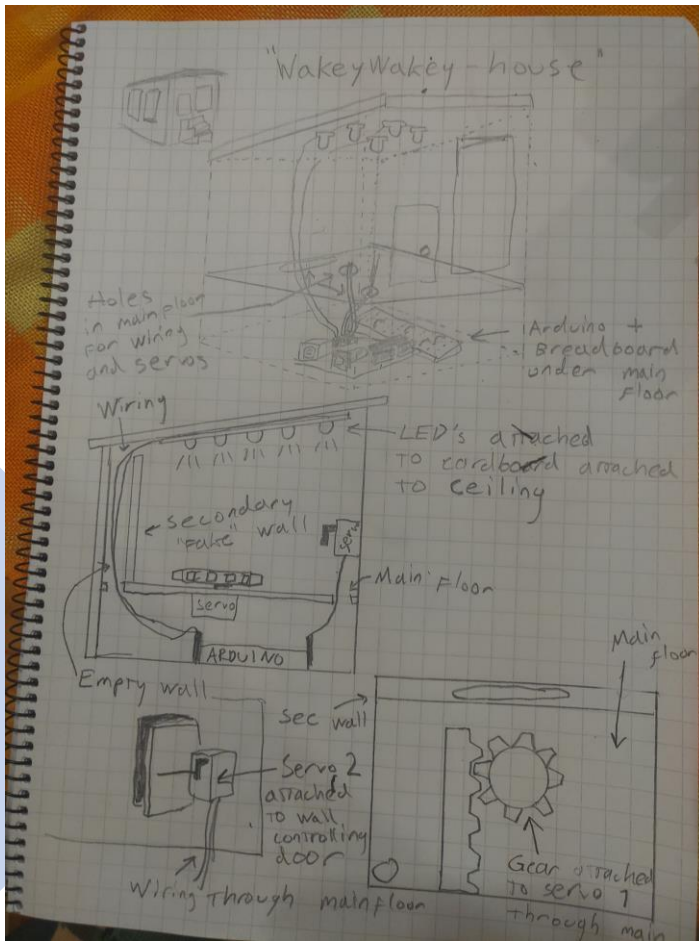 "WakeyWakey-house"
Holes
in mainfloor
for wiring
and servos
Arduino +
Breadboard
under main
Floor
Wiring
LED's attached
to cardboard attached
to ceiling
secondary
"Fake" wall
servo
Main Floor
servo
ARDUINO
Empty wall
Main
floor
sec wall
Servo 2
attached
to wall
controlling
door
Wiring Through mainfloor
Gear attached
to servo 1
through main